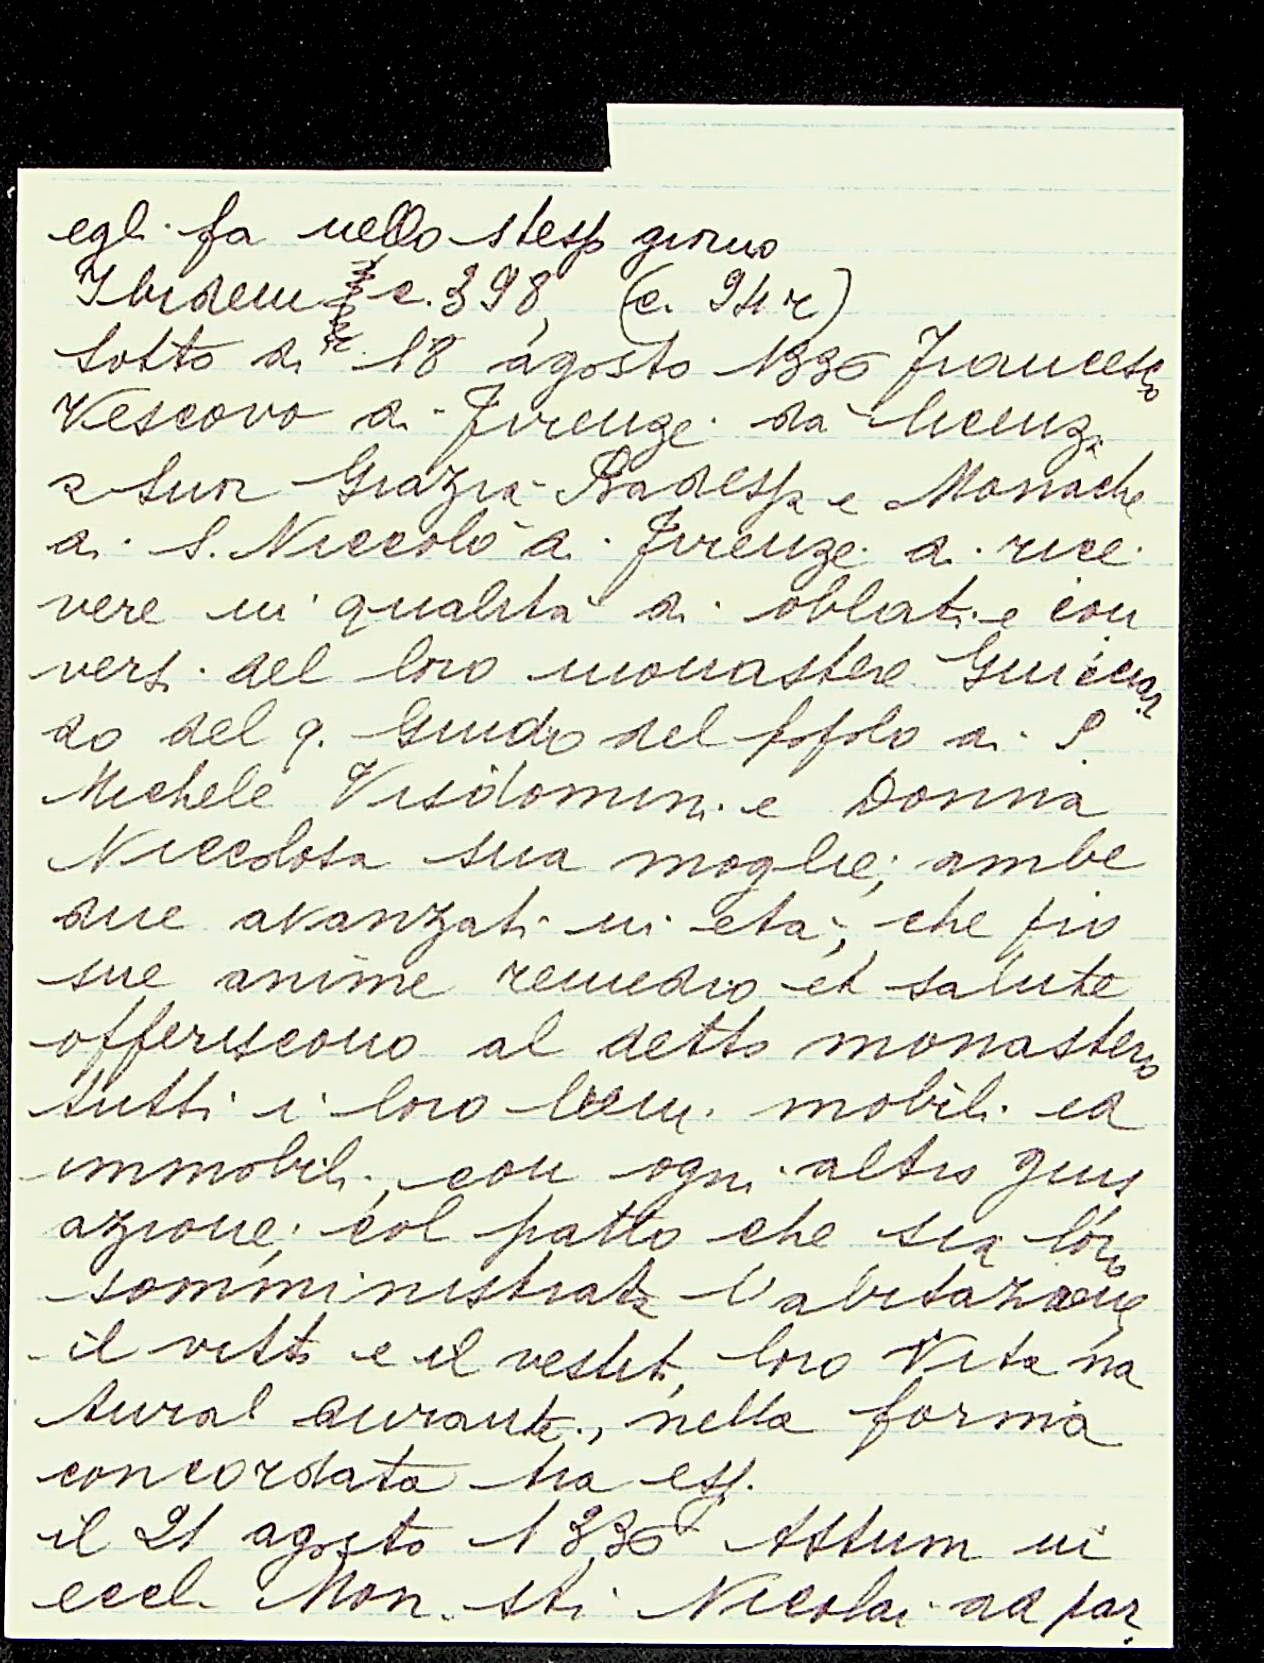 egli fa nello stesso giorno
Ibidem c. 398, (c. 94 r)
Sotto dì 18 agosto 1336 Francesco
Vescovo di Firenze dà licenza
a Suor Grazia Badessa e Monache
di S. Niccolò di Firenze di rice
vere in qualità di oblati e con
versi del loro monastero Guicciar
do del q. Guido del popolo di S.
Michele Visdomini e Donna
Niccolosa sua moglie; ambe
due avanzati in età; che pro
sue anime remedio et salute
offeriscono al detto monastero
tutti i loro beni mobili ed
immobili, con ogni altro gius
azione; col patto che sia loro
somministrata l'abitazione
il vitto e il vestito, loro vita na
tural durante, nella forma
concordata tra essi.
il 21 agosto 1336 Attum in
eccl. Mon. sti Nicolai ad par